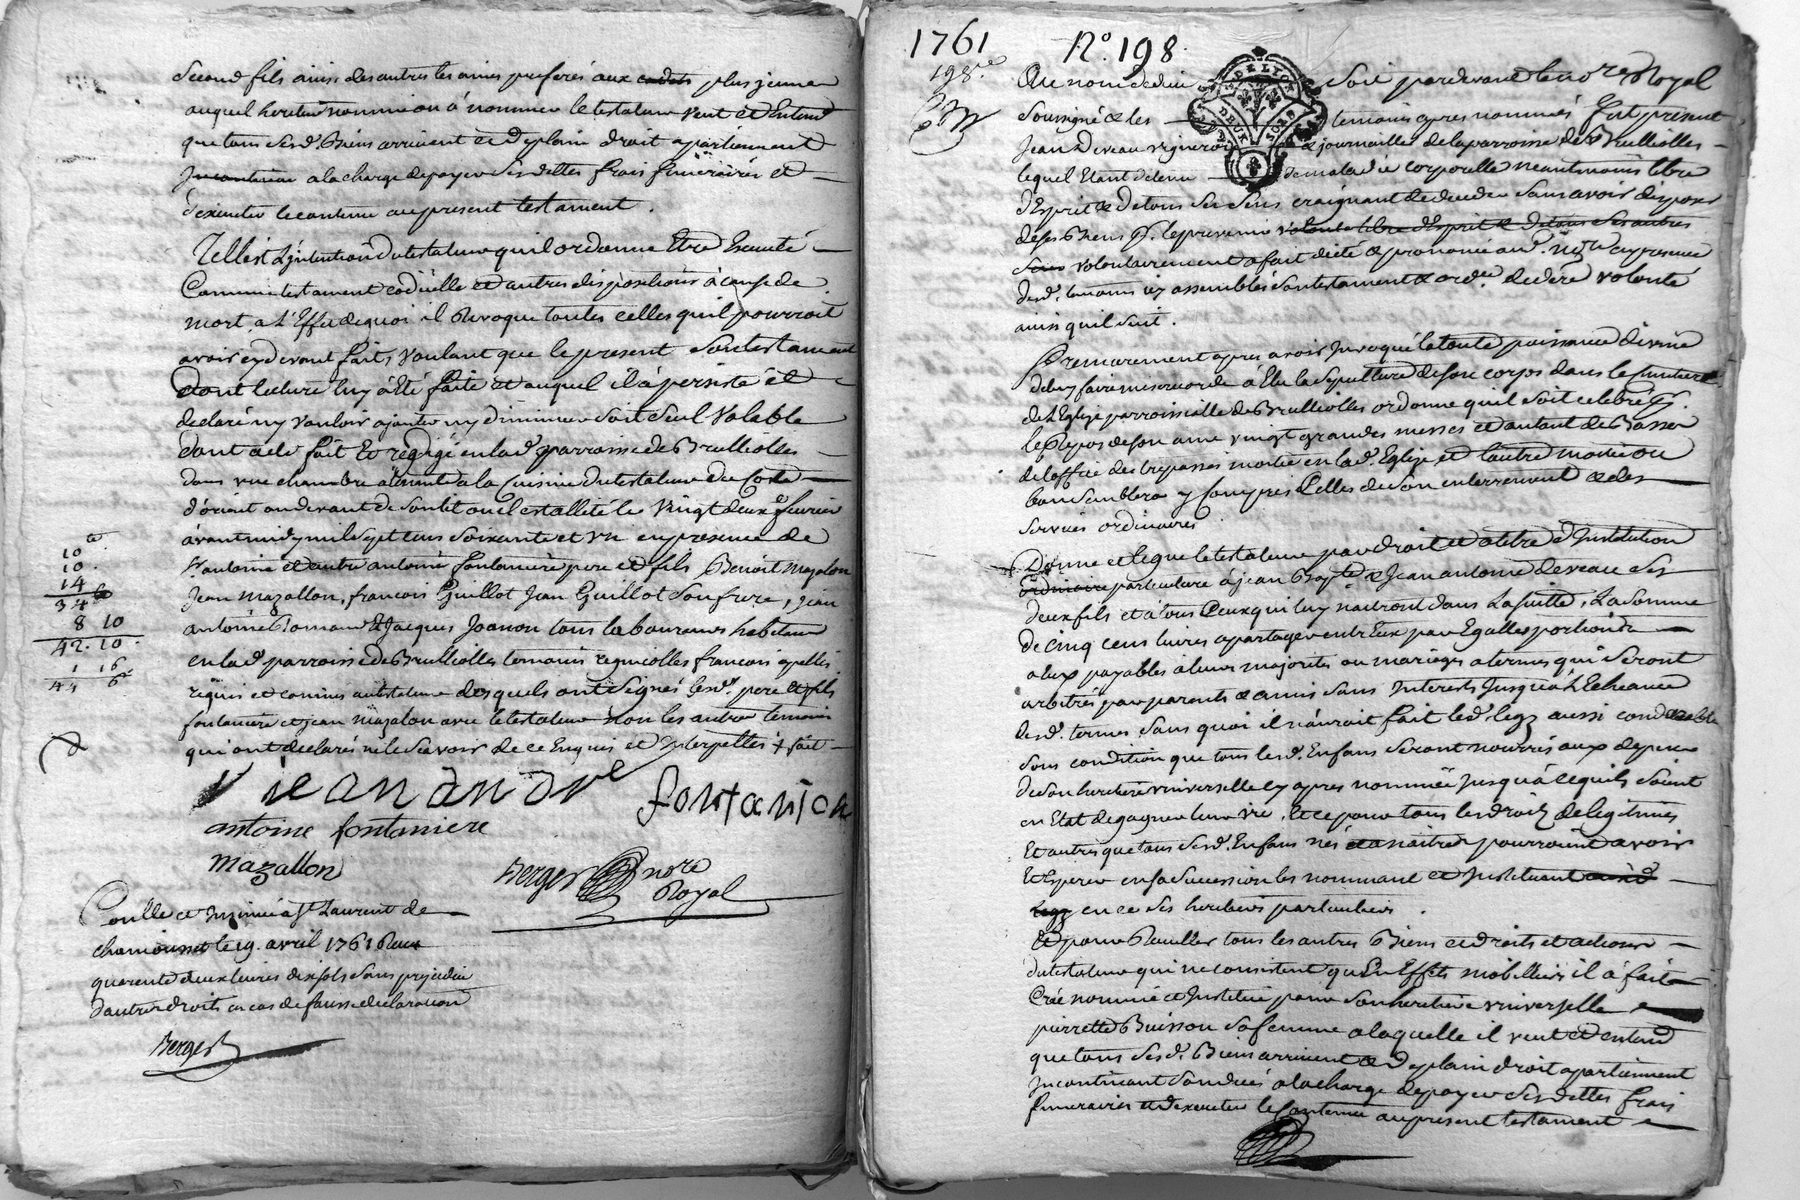 second fils ainsi des autres les ainés preferés aux cadets plus jeune
auquel heritier nommé ou á nommer le testateur veut et Entend
que tous sesd. Biens arrivent et de plain droit apartiennent
Incontinan a la charge de payer ses dettes frais funeraires et
d'executer le contenu au present testament.
Telle est L'jntention du testateur qu'il ordonne Etre Executé
Comme testament codicille et autres dispositions à cause de
mort, a L'Effet de quoi il Revoque toutes celles qu'il pourroit
avoir cy devant fait, voulant que le present son testament
dont lecture luy á Eté faite et auquel il á persisté et
declaré n'y vouloir ajouter ny diminuer soit seul valable
dont acte fait et redigé en lad. parroisse de Brullioles
dans une chambre attenante a la Cuisine du testateur du Coté
d'orient au devant de son lit ou il est allité le vingt deux fevrier
avant midy mil sept cens soixante et un en presence de
Sr. antoine et autre antoine fontaniere pere et fils Benoit Mazalon
Jean mazallon, francois Guillot Jean Guillot son frere, jean
antoine et Jacques Joanon tous laboureurs habitans
en lad. parroisse de Brullioles temoins regnicolles francois apellés
requis et connus au testateur desquels ont signés lesd. pere et fils
fontaniere et jean mazalon avec le testateur non les autres temoins
qui ont declarés ne le scavoir de ce Enquis et Interpellés + fait
10
10
14
34
8 10
42. 10
1 16
44 6
jean
fontanier
antoine fontaniere
Mazallon
Berger nore
Royal
Conllé et Insinué á St Laurent de
chamousset le 19. avril 1761 Reçu
quarente deux livres dix sols sans prejudice
d'autres droits en cas de fausse declaration
Berger
1761 No. 198.
198.e
DE LION
DEUX SOLS
Au nom de dieu soit pardevant le nore Royal
soussigné et les temoins apres nommés fut present
Jean Deveau vigneron et journaillier de la parroisse de Brullioles
lequel Etant detenu de maladie corporelle neantmoins libre
d'Esprit et de tous ses sens craignant de deceder sans avoir disposé
de ses Biens pr. le prevenir volonté libre d'Esprit et de tous ses autres
sens volontairement a fait dicté et prononcé aud. nore en presence
desd. temoins cy assemblés son testament et ordre. de dere volonté
ainsi qu'il suit.
Premierement apres avoir Invoqué la toute puissance divine
de luy faire misericorde á Elu la sepulture de son corps dans le Cimitiere
de L'Eglise parroissialle de Brullioles ordonne qu'il soit celebré pr.
le Repos de son ame vingt grandes messes et autant de Basses
de l'office des trepassés moitié en lad. Eglise et l'autre moitié ou
bon semblera y Compris Celles de son enterrement et des
services ordinaires
Donne et legue le testateur par droit et a titre d'Institution
ordinaire particuliere á jean Bapte. & Jean antoine deveau ses
deux fils et á tous Ceux qui luy naitront dans La suitte, La somme
de cinq cens livres a partager entr'Eux par Egalles portions
a eux payables a leurs majorités ou mariages a termes qui seront
arbitrés par parents et amis sans Interests Jusqu'á L'Echeance
desd. termes sans quoi il n'auroit fait led. legz aussi considerable
sous condition que tous lesd. Enfans seront nourris aux depens
de son heritiere universelle cy apres nommée Jusqu'á ce qu'ils soient
en Etat de gagner leur vie, Et ce pour tous les droitz de legitimes
Et autres que tous sesd. Enfans nés et a naitre pourroient avoir
Et Esperer en sa succession les nommant et Instituant
legz en ce ses heritiers particuliers.
Et pour Recuillir tous les autres Biens et droits et actions
du testateur qui ne consistent qu'En Effets mobilliers il á fait
Créé nommé et Institué pour son heritiere universelle
pierrette Buisson sa femme a laquelle il veut et entend
que tous sesd. Biens arrivent et de plain droit apartiennent
Incontinant son decés a la charge de payer ses dettes frais
funeraires et d'executer le Contenu au present testament